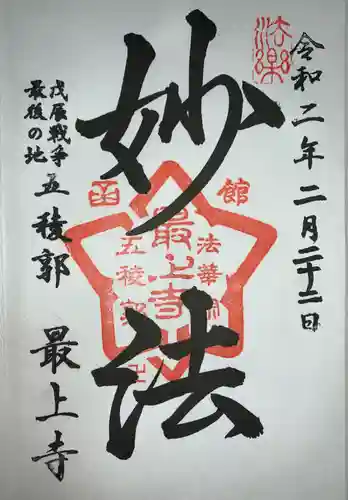 法樂
令和二年二月二十二日
妙法
函館
法華宗
最上寺
五稜郭
戊辰戦争
最後の地
五稜郭 最上寺